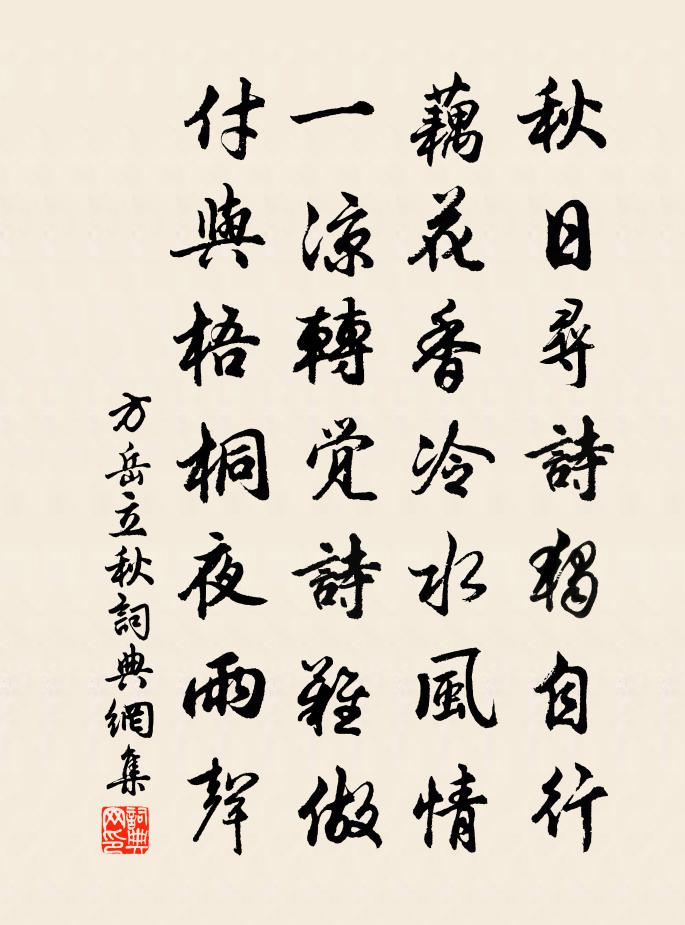 秋日尋詩獨自行
藕花香冷水風情
一涼轉覺詩難做
付與梧桐夜雨聲
方岳立秋詞典網集
詞典網印